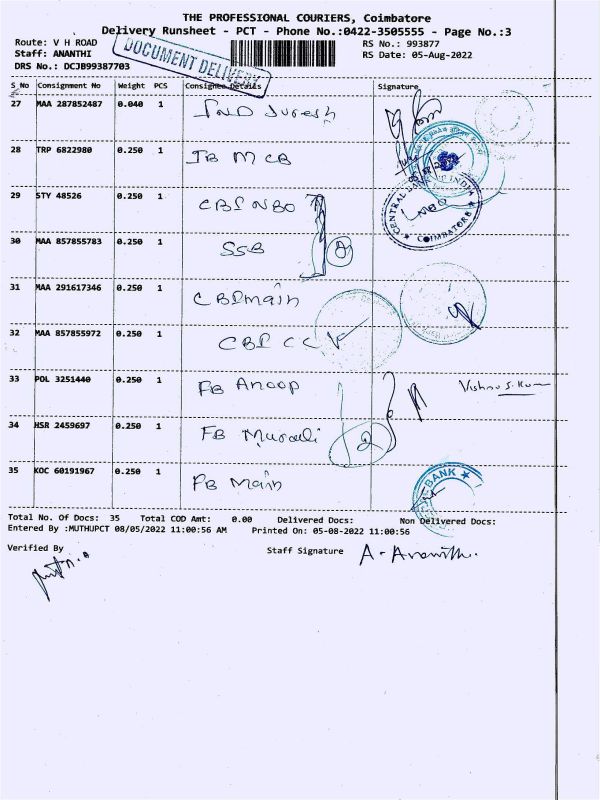 THE PROFESSIONAL COURIERS, Coimbatore
Delivery Runsheet - PCT - Phone No.:0422-3505555 - Page No.:3
Route: V H ROAD RS No.: 993877
Staff: ANANTHI RS Date: 05-Aug-2022
DRS No.: DCJB99387703
DOCUMENT DELIVERY
S_No Consignment No Weight PCS Consignee Details Signature
27 MAA 287852487 0.040 1 IND Suresh
28 TRP 6822980 0.250 1 IB M CB
29 STY 48526 0.250 1 CBI NBO
CENTRAL BANK OF INDIA
COIMBATORE
30 MAA 857855783 0.250 1 SSB 2
31 MAA 291617346 0.250 1 CBI main
32 MAA 857855972 0.250 1 CBI CC
33 POL 3251440 0.250 1 FB Anoop Vishnu S. Kum
34 HSR 2459697 0.250 1 FB Murali 2
35 KOC 60191967 0.250 1 FB Main
BANK
Total No. Of Docs: 35 Total COD Amt: 0.00 Delivered Docs: Non Delivered Docs:
Entered By :MUTHUPCT 08/05/2022 11:00:56 AM Printed On: 05-08-2022 11:00:56
Verified By Staff Signature A. Ananthi.